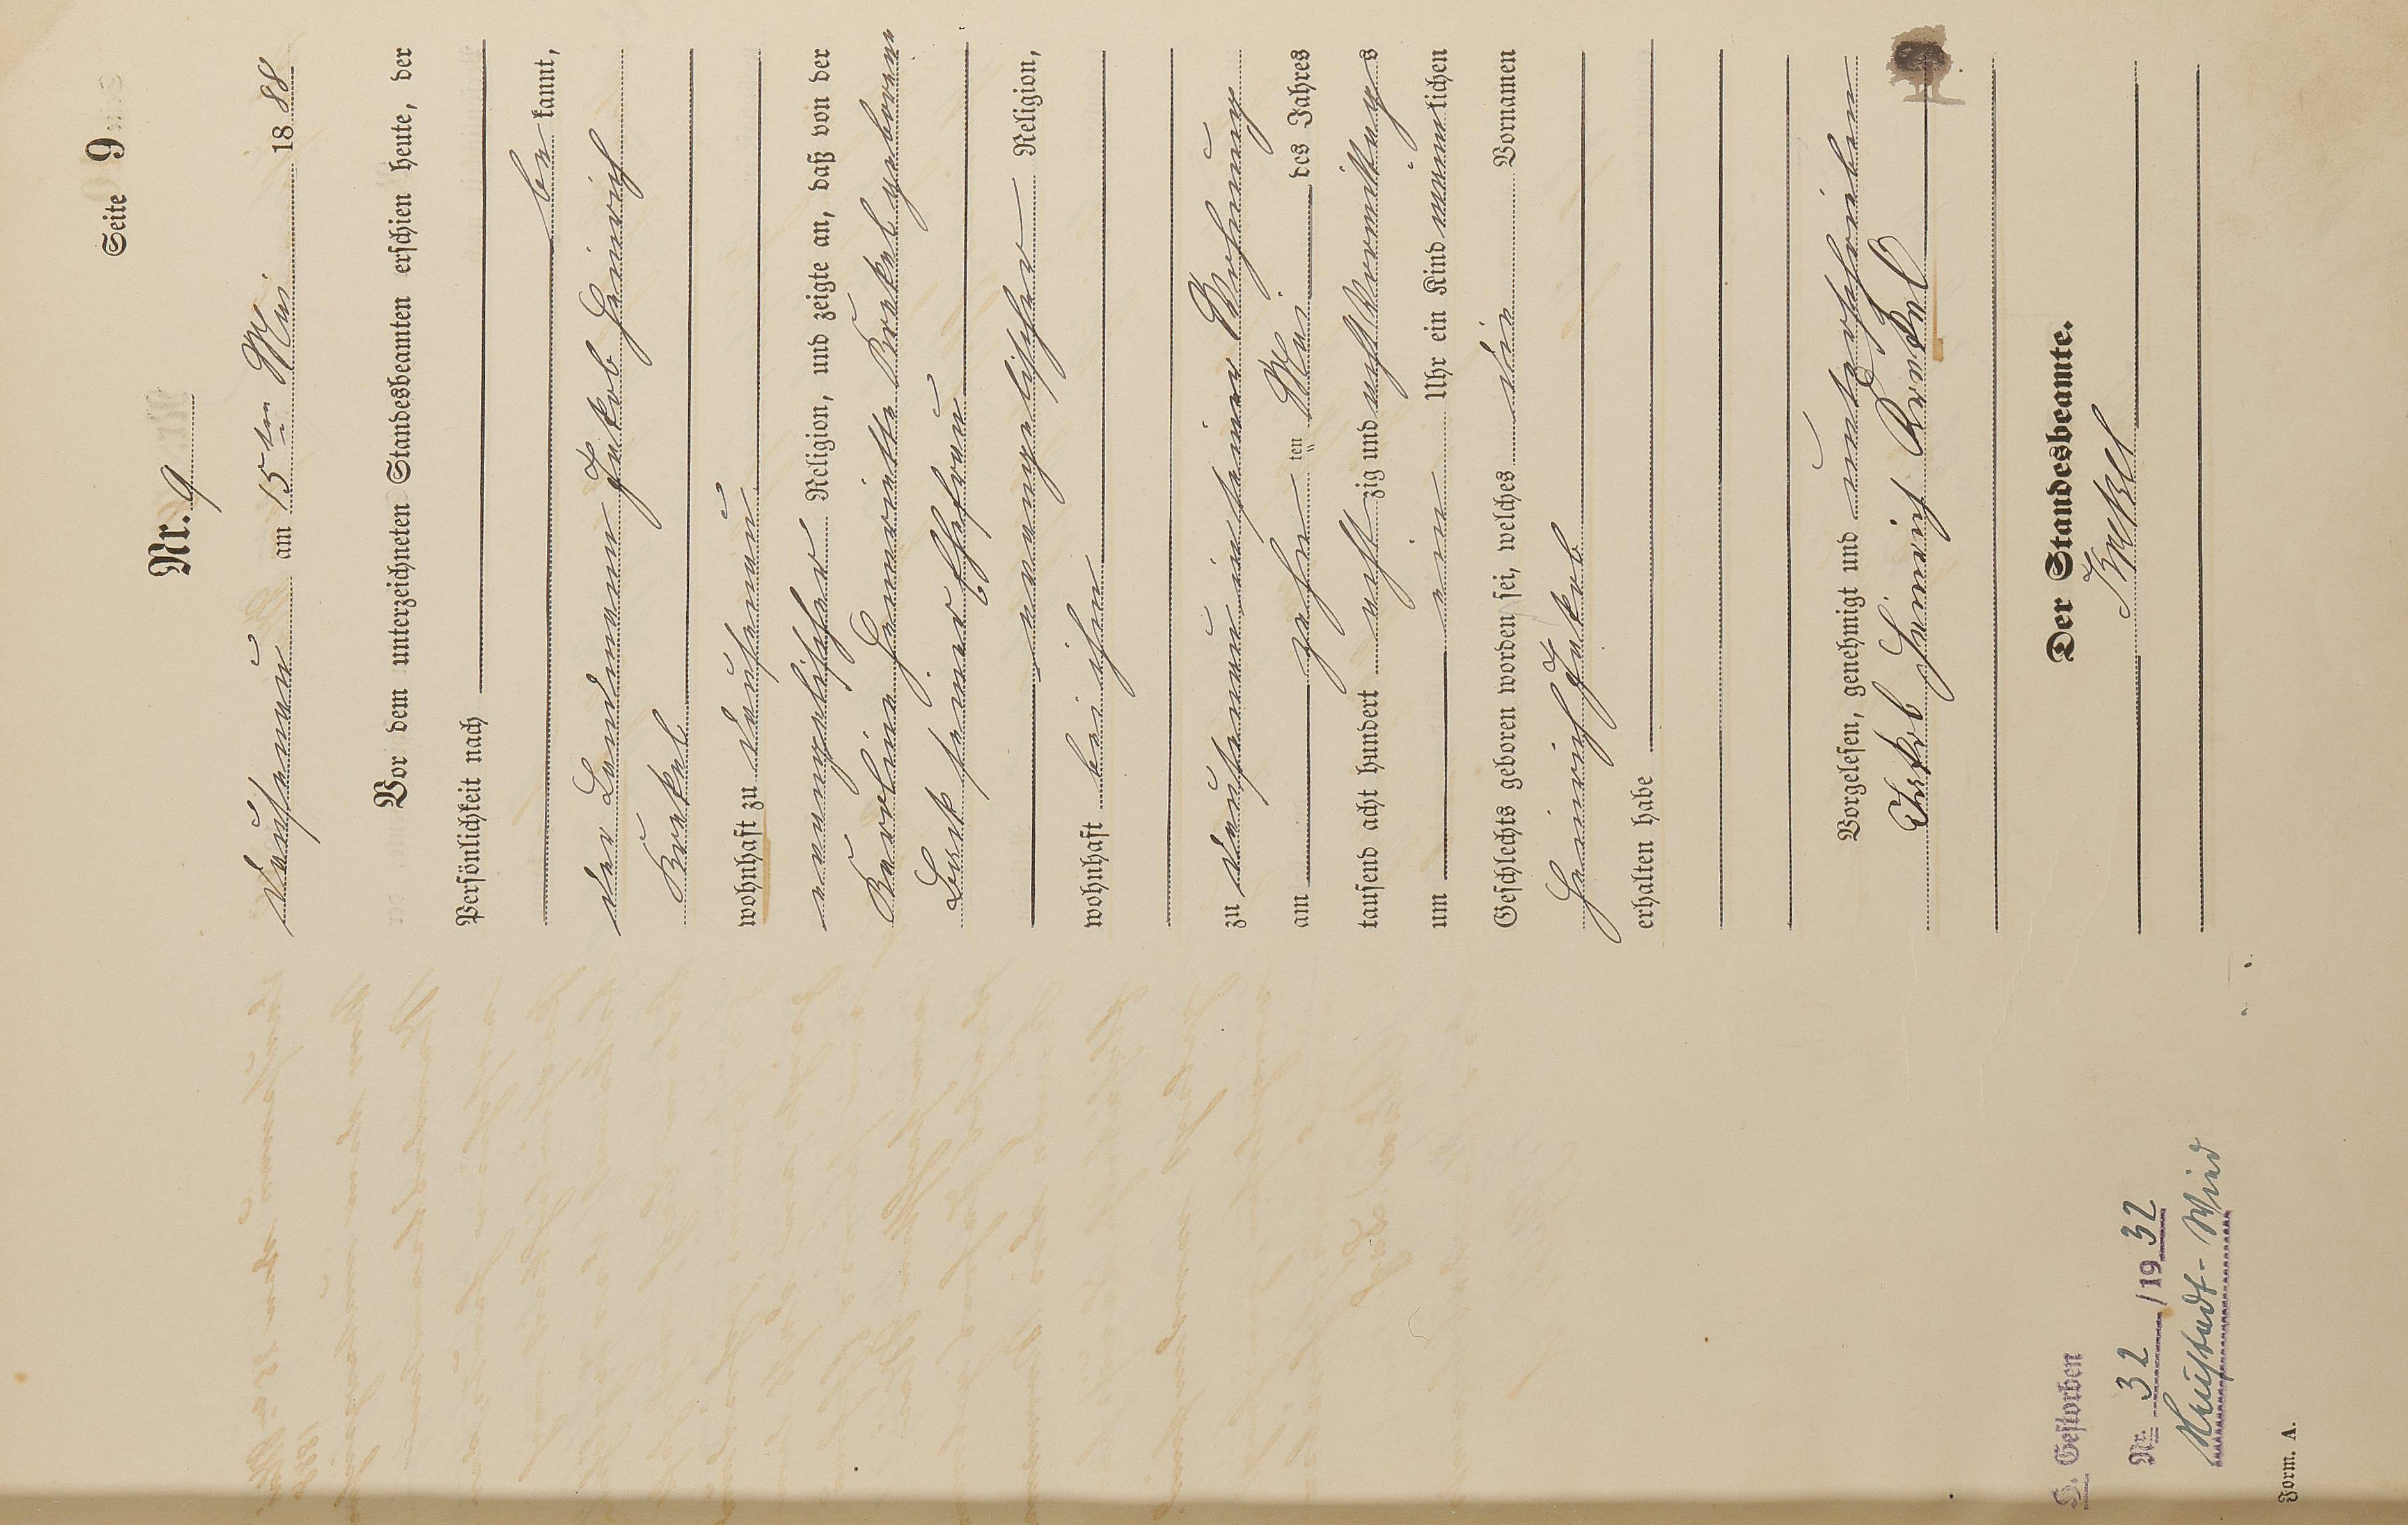 Seite 9
Nr. 9
Daufenau am 15ten Mai 1888
Vor dem unterzeichneten Standesbeamten erschien heute, der
Persönlichkeit nach
be kannt,
der Landmann Jakob Heinrich
wohnhaft zu Dausenau
evangelischer Religion, und zeigte an, daß von der
Karline Henriette geborenen
seiner Ehefrau
evangelischer Religion,
wohnhaft bei ihm
zu Dausenau in seiner Wohnung
am zehn ten Mai des Jahres
tausend acht hundert acht zig und acht Vormittags
um ein Uhr ein Kind männlichen
Geschlechts geboren worden sei, welches die Vornamen
Heinrich Jakob
erhalten habe
Vorgelesen, genehmigt und unterschrieben
Jakob Heinrich
Der Standesbeamte.
H. Gestorben
Nr. 32 /1932
Neustadt-Wied
Form. A.